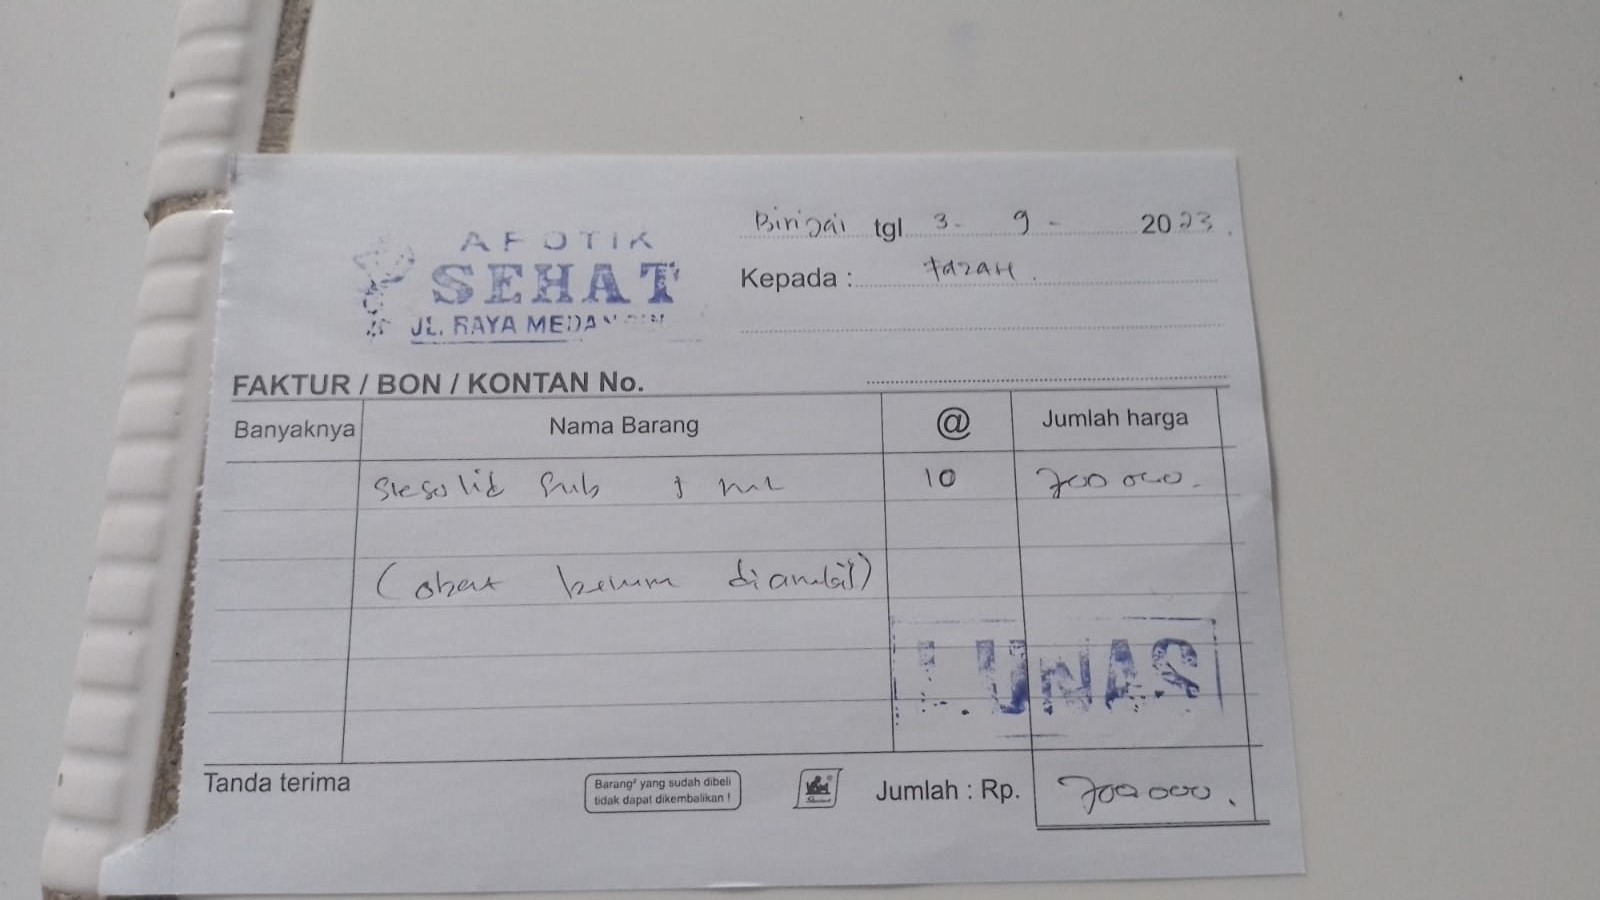 APOTIK
SEHAT
JL. RAYA
tgl 3 - 9 - 2023
Kepada :
FAKTUR / BON / KONTAN No.
Banyaknya Nama Barang @ Jumlah harga
10 700 000.
(obat belum diambil)
LUNAS
Tanda terima
Barang² yang sudah dibeli
tidak dapat dikembalikan !
Jumlah : Rp. 700 000.